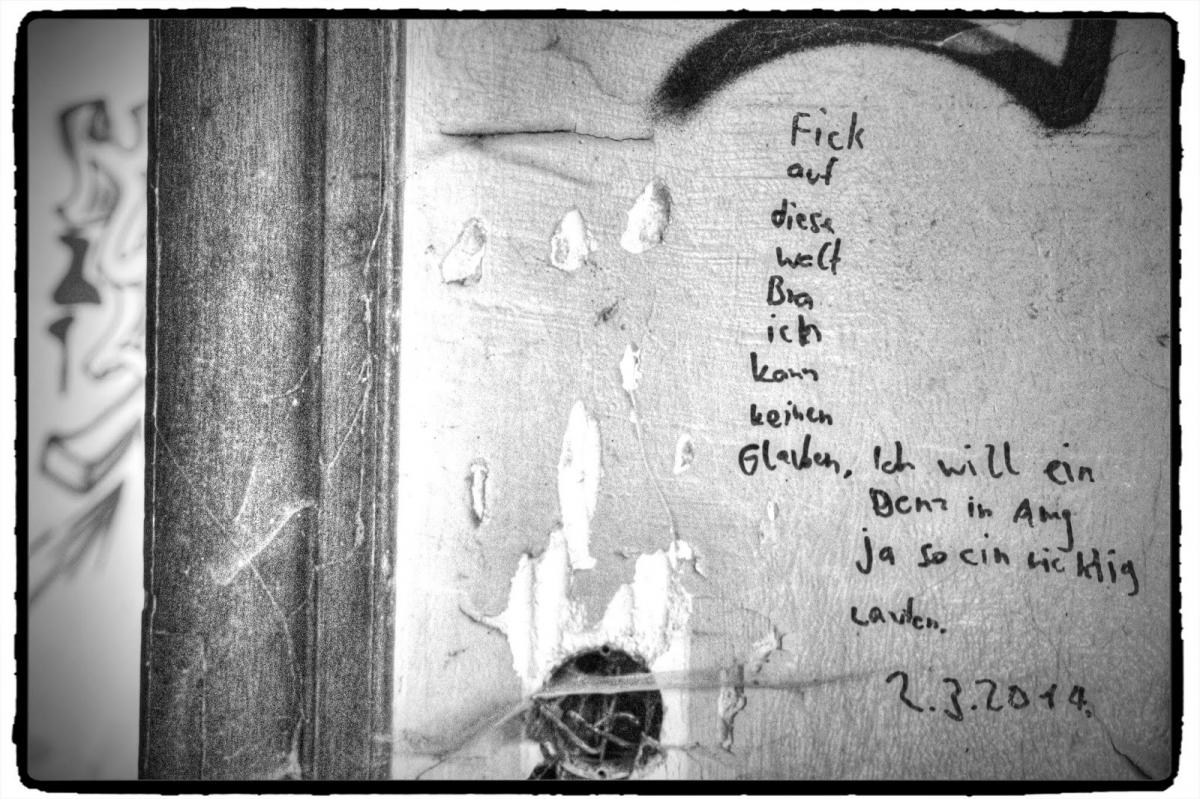 Fick
auf
diese
welt
Bra
ich
kann
keinen
Glauben, Ich will ein
Benz in Amg
ja so ein richtig
lauten.
2.3.2014.